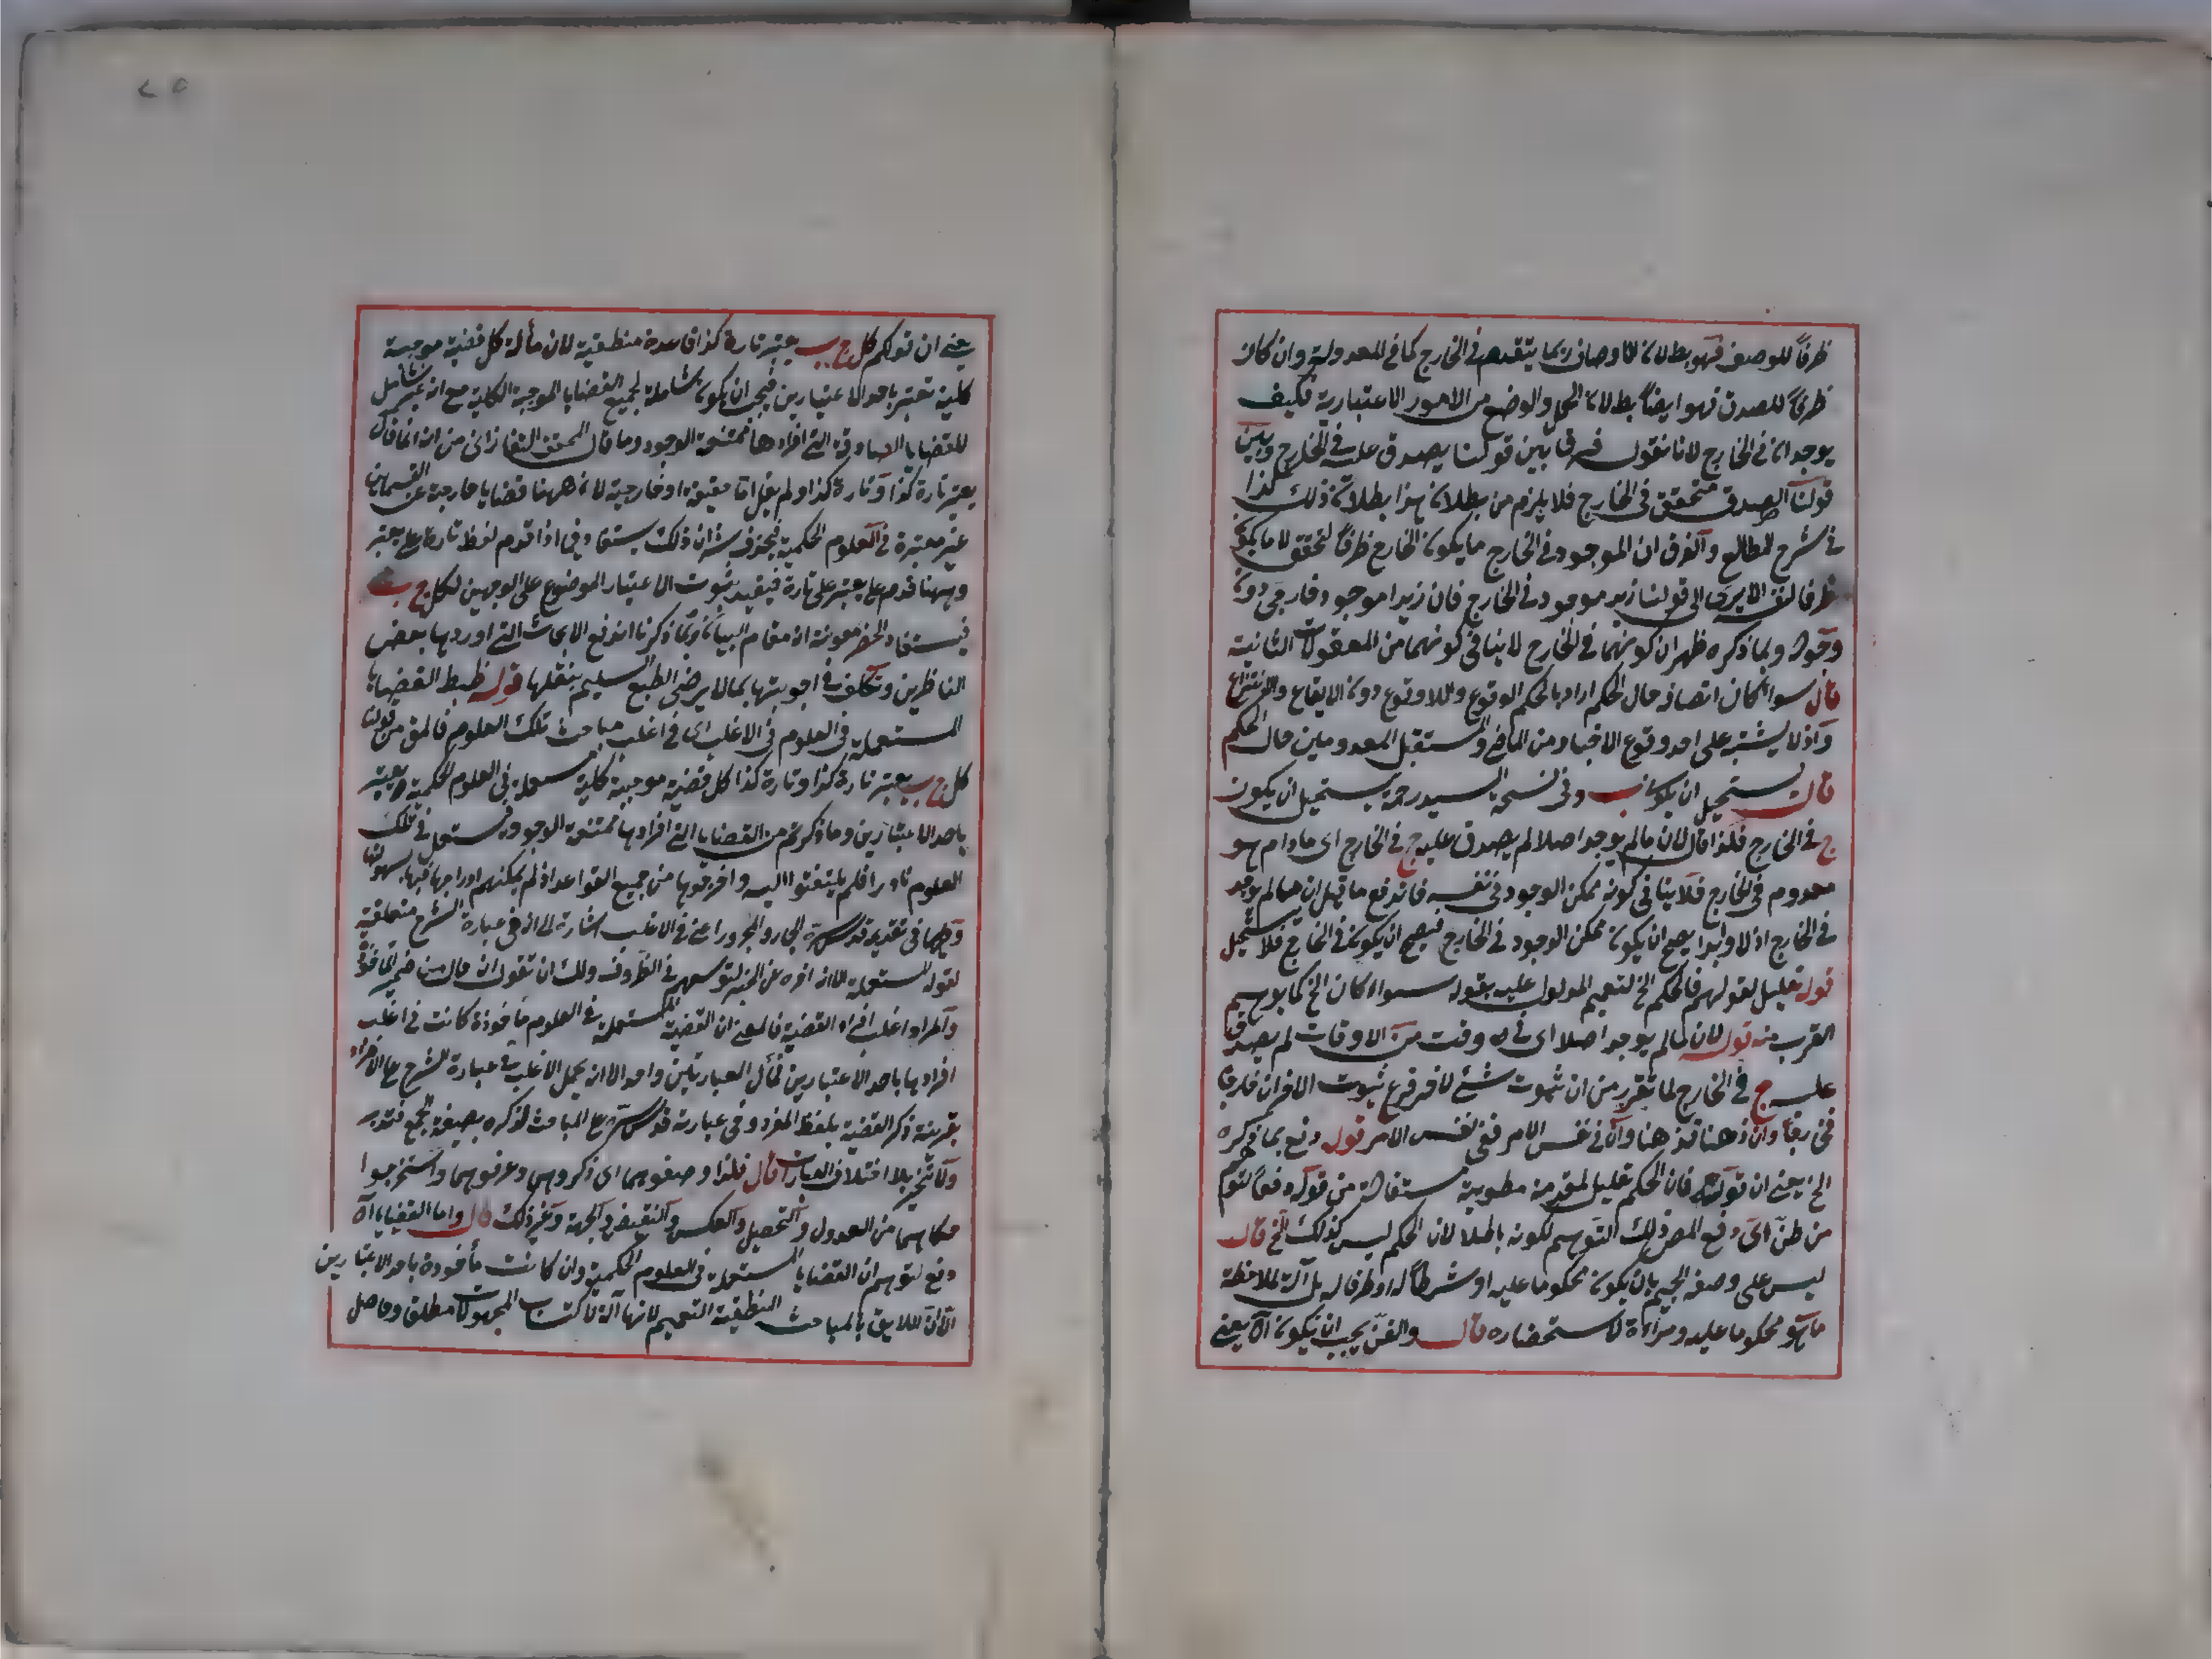 ظرفاً للوصف فهو بطلان لان الاوصاف ربما يتقدم في الخارج كما في المعدولة وان كان
ظرفاً للصدق فهو ايضاً بطلان الحمل والوضع من الامور الاعتبارية فكيف
يوجدان في الخارج لانا نقول فرق بين قولنا يصدق عليه في الخارج وبين
قولنا الصدق متحقق في الخارج فلا يلزم من بطلان هذا بطلان ذلك هكذا
في شرح المطالع والفرق ان الموجود في الخارج ما يكون الخارج ظرفاً لتحققه لا ما يكون
ظرفا لنفسه الا يرى الى قولنا زيد موجود في الخارج فان زيدا موجود خارجي دون
وجوده وبما ذكره ظهر ان كونهما في الخارج لا ينافي كونهما من المعقولات الثانية
قال سواء كان اتصافه حال الحكم اراد بالحكم الوقوع واللاوقوع دون الايقاع والانتزاع
واذ لا يشتبه على احد وقوع الاخبار من الماضي والمستقبل المعدومين حال الحكم
قال يستحيل ان يكون ب وفي نسخة السيد رحمه يستحيل ان يكون
ج في الخارج فلذا قال لان ما لم يوجد اصلا لم يصدق عليه ج في الخارج اى ما دام هو
معدوم في الخارج فلا ينافي كونه ممكن الوجود في نفسه فاندفع ما قيل ان ما لم يوجد
في الخارج ازلا وابدا يصح ان يكون ممكن الوجود في الخارج فيصح ان يكون في الخارج فلا يستحيل
قوله تعليل لقولهم فالحكم الخ لتعميم المدلول عليه بقوله سواء كان الخ كما يوهم
القرب منه قوله لان ما لم يوجد اصلا اى في وقت من الاوقات لم يصدق
عليه ج في الخارج لما تقرر من ان ثبوت شئ لاخر فرع ثبوت الاخر ان خارجا
فخارجا وان ذهنا فذهنا وان في نفس الامر ففي نفس الامر قوله دفع بما ذكره
الخ يعني ان قوله فان الحكم تعليل لمقدمة مطوية مستفادة من قوله دفعا لتوهم
من ظن اى دفع المص ذلك التوهم لكونه باطلا لان الحكم ليس كذلك الخ قال
ليس على وصف الجيم بان يكون محكوما عليه او شرطا له او ظرفا له بل آلة لملاحظة
ما هو محكوما عليه ومرآة لاستحضاره قال والفن يجب ان يكون آه يعني
يعني ان قولكم كل ج ب يعتبر تارة كذا قاعدة منطقية لان مآله كل قضية موجبة
كلية تعتبر باحد الاعتبارين فيجب ان يكون شاملة لجميع القضايا الموجبة الكلية مع انه غير شامل
للقضايا الصادقة التي افرادها ممتنعة الوجود وما قال المحقق التفتازانى من انه انما قال
يعتبر تارة كذا وتارة كذا ولم يقل اما حقيقية او خارجية لان ههنا قضايا خارجة عن القسمين
غير معتبرة في العلوم الحكمية فيه ان ذلك يستفاد في اذا قدم لفظ تارة على يعتبر
وههنا قدم على يعتبر على تارة فيفيد ثبوت الاعتبار الموضوع على الوجهين لكل ج ب
فيستفاد الحصر معونة ان مقام البيان وبما ذكرنا اندفع الابحاث التي اوردها بعض
الناظرين وتكلف في اجوبتها بما لا يرضى الطبع السليم بنقلها قوله ضبط القضايا
المستعملة في العلوم في الاغلب اى في اغلب مباحث تلك العلوم فالمعنى من قولنا
كل ج ب يعتبر تارة كذا وتارة كذا كل قضية موجبة كلية مستعملة في العلوم الحكمية يعتبر
باحد الاعتبارين وما ذكرتم من القضايا التي افرادها ممتنعة الوجود مستعمل في تلك
العلوم نادرا فلم يلتفتوا اليه واخرجوها من جميع القواعد اذ لم يمكنهم ادراجها فيها بسهولة
في تقديره قدس سره الجار والمجرور اعني في الاغلب اشارة الى انه في عبارة الشرح متعلقة
لقوله المستعملة الا انه اخره عن الخبر لتوسعهم في الظروف ولك ان تقول انه حال من ضمير المأخوذة
والمراد اغلب افراد القضية فالمعنى ان القضية المستعملة في العلوم مأخوذة كانت في اغلب
افرادها باحد الاعتبارين فمآل العبارتين واحد الا انه يحمل الاغلب في عبارة الشرح على الافراد
بقرينة ذكر القضية بلفظ المفرد وفي عبارته قدس سره على المباحث لذكره بصيغة الجمع فتدبر
قال فلذا وصفوهما اى ذكروهما وعرفوهما واستخرجوا
احكامهما من العدول والتحصيل والعكس والنقيض والجهة وغير ذلك قال واما القضايا آه
دفع لتوهم ان القضايا المستعملة في العلوم الحكمية وان كانت مأخوذة باحد الاعتبارين
الا ان اللايق بالمباحث المنطقية التعميم لانها آلة لاكتساب المجهولات مطلق وحاصل